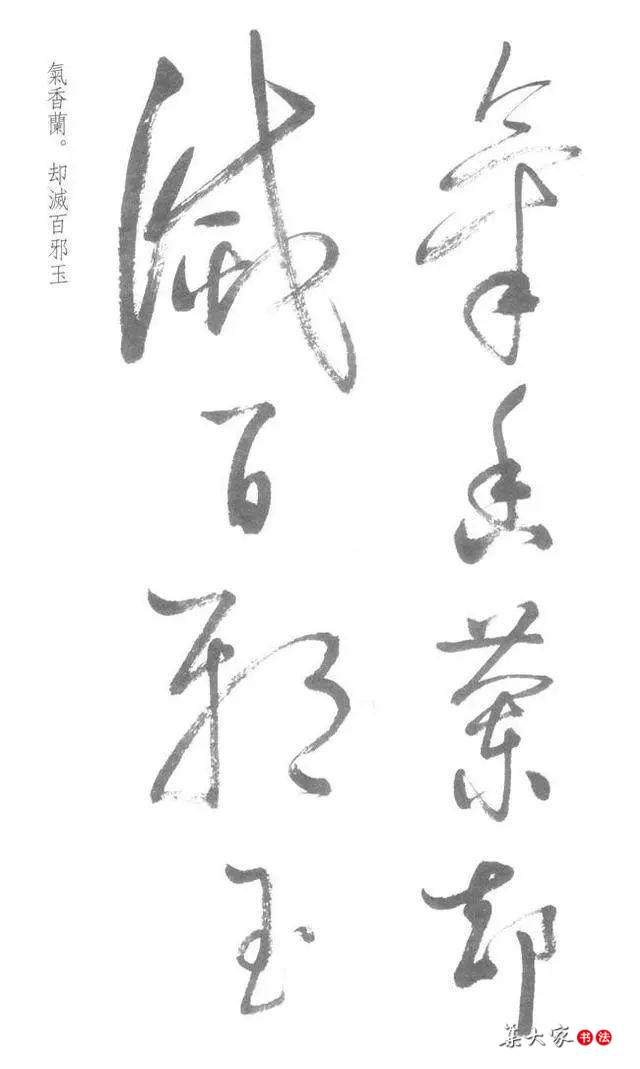 氣香蘭却
滅百邪玉
氣香蘭。却滅百邪玉
集大家书法